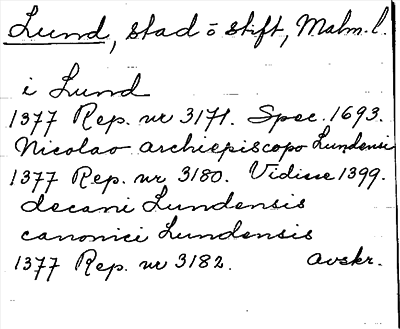 Lund, stad ō stift, Malm. l.
i Lund
1377 Rep. nr 3171. Spec. 1693.
Nicolao archiepiscopo Lundensi
1377 Rep. nr 3180. Vidisse 1399.
decani Lundensis
canonici Lundensis
1377 Rep. nr 3182. avskr.